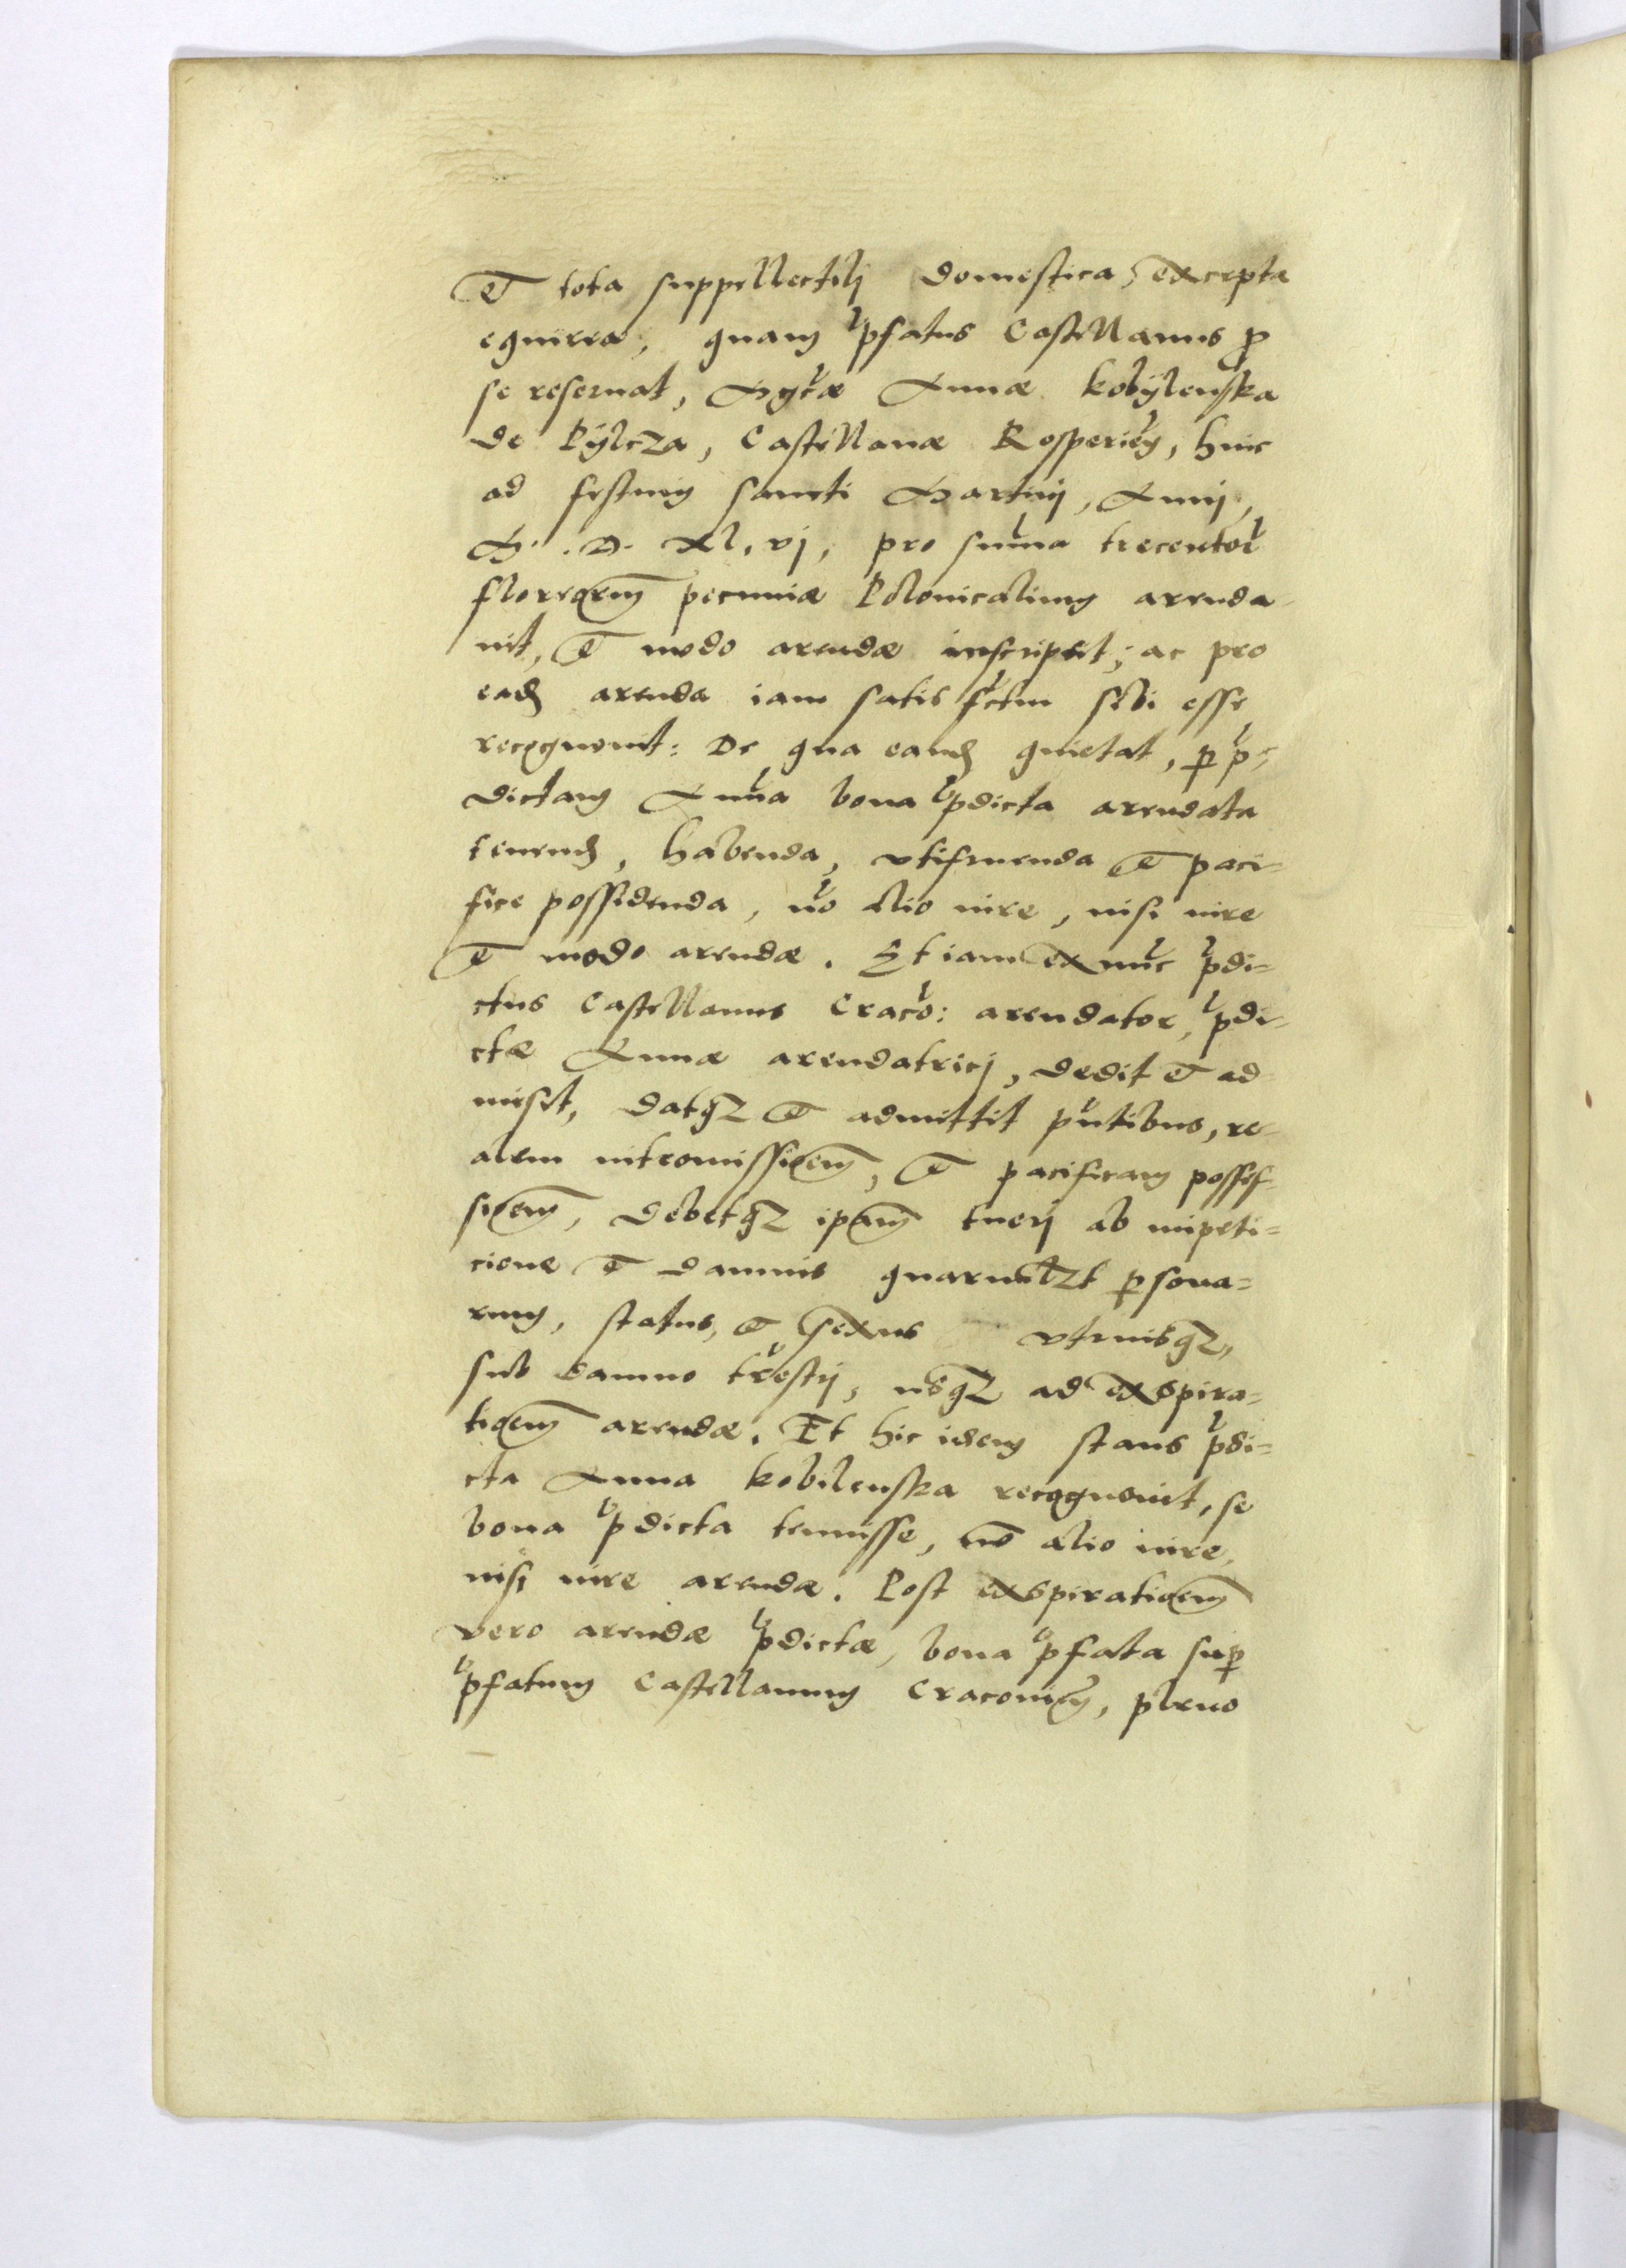 et tota suppellectilj domestica, excepta
equirea, quam p̃fatus Castellanus ꝑ
se reseruat, Mgcæ Annæ kobÿlenska
de Pÿlcza, Castellanæ Rosperień, hinc
ad festum sancti Martinj, Annj,
M. D. xl. vj, pro suma trecentor̃
florenorum pecuniæ Polonicalium arenda
uit, et modo arendæ inscripsit; ac pro
ead̃ arenda iam satis fctm sibi esse
recognouit: De qua eand̃ quietat, ꝑ p̃-
dictam Anna bona p̃dicta arendata
tenend̃, habenda, vtifruenda et paci-
fice possidenda, nõ alio iure, nisi iure
et modo arendæ. Et iam ex nũc p̃di-
ctus Castellanus Craco: arendator, p̃di-
ctæ Annæ arendatricj, dedit et ad
misit, datqz et admittit pñtibus, re-
alem intromissionem, et pacificam posses-
sionem, debetqz ipam tuerj ab impeti-
cione et damnis quarumlzt ꝑsona-
rum, status, et sexus vtriusqz,
sub damno trestij, usqz ad exspira-
tionem arendæ. Et hic idem stans p̃di-
cta Anna kobilenska recognouit, se
bona p̃dicta tenuisse, nõ alio iure,
nisi iure arendæ. Post exspirationem
vero arendæ p̃dictæ, bona p̃fata suꝑ
p̃fatum Castellanum Cracouień, pleno